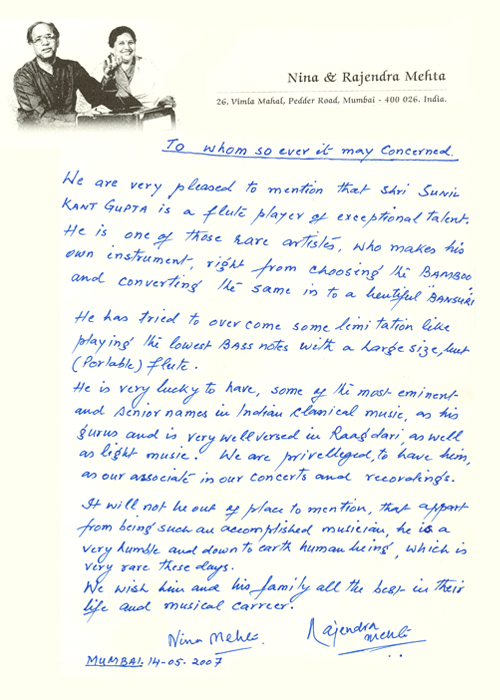 Nina & Rajendra Mehta
26, Vimla Mahal, Pedder Road, Mumbai - 400 026. India.
To whom so ever it may concerned.
We are very pleased to mention that Shri SUNIL
KANT GUPTA is a flute player of exceptional talent.
He is one of those rare artists, who makes his
own instrument, right from choosing the BAMBOO
and converting the same in to a beutiful "BANSURI
He has tried to over come some limitation like
playing the lowest BASS notes with a large size, but
(Portable) flute.
He is very lucky to have, some of the most eminent
and senior names in Indian classical music, as his
gurus and is very well versed in Raagdari, as well
as light music. We are privelleged, to have him,
as our associate in our concerts and recordings.
It will not be out of place to mention, that appart
from being such an accomplished musician, he is a
very humble and down to earth human being, which is
very rare these days.
We wish him and his family all the best in their
life and musical carreer.
Nina Mehta. Rajendra
Mehta
MUMBAI. 14-05-2007